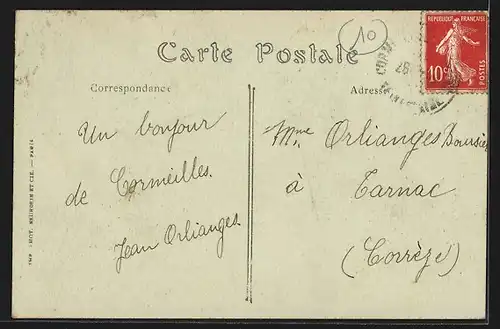 10
Carte Postale
REPUBLIQUE FRANÇAISE
10c
POSTES
26
Correspondance
Adresse
Un bonjour
de Cormeilles.
Jean Orlianges
Mme Orlianges Boursier
à
Tarnac
(Corrèze)
PHOT. NEURDEIN ET CIE. — PARIS